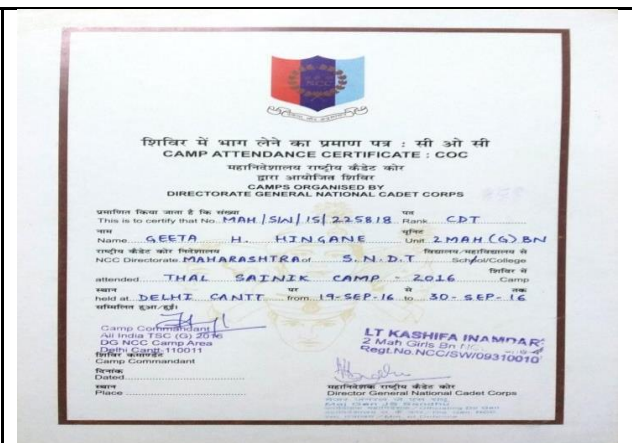 NCC
शिविर में भाग लेने का प्रमाण पत्र : सी ओ सी
CAMP ATTENDANCE CERTIFICATE : COC
महानिदेशालय राष्ट्रीय कैडेट कोर
द्वारा आयोजित शिविर
CAMPS ORGANISED BY
DIRECTORATE GENERAL NATIONAL CADET CORPS
प्रमाणित किया जाता है कि संख्या पद
This is to certify that No. MAH/SW/15/225818 Rank CDT
नाम यूनिट
Name GEETA H. HINGANE Unit 2 MAH (G) BN
राष्ट्रीय कैडेट कोर निदेशालय विद्यालय/महाविद्यालय से
NCC Directorate MAHARASHTRA of S.N.D.T School/College
शिविर में
attended THAL SAINIK CAMP - 2016 Camp
स्थान पर से तक
held at DELHI CANTT from 19-SEP-16 to 30-SEP-16
सम्मिलित हुआ/हुई।
Camp Commandant
All India TSC (G) 2016
DG NCC Camp Area
Delhi Cantt-110011
शिविर कमाण्डेंट
Camp Commandant
LT KASHIFA INAMDAR
2 Mah Girls Bn NCC
Regt.No.NCC/SW/09310010
दिनांक
Dated
स्थान
Place
महानिदेशक राष्ट्रीय कैडेट कोर
Director General National Cadet Corps